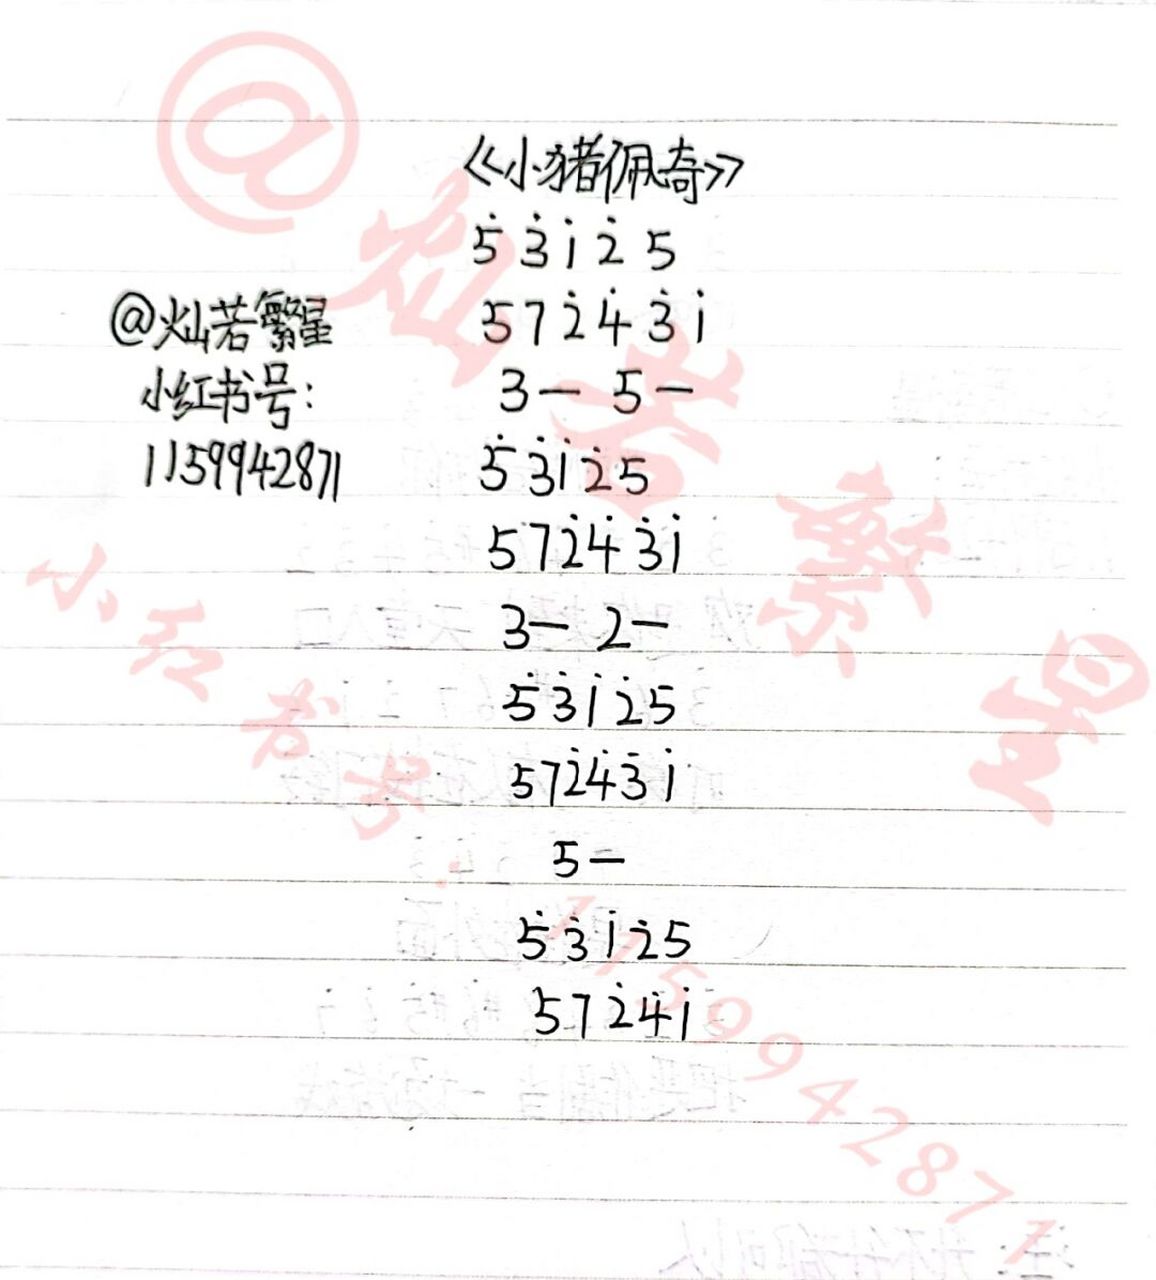 《小猪佩奇》
5̇ 3̇ 1̇ 2̇ 5
5 7 2̇ 4̇ 3̇ 1̇
3— 5—
5̇ 3̇ 1̇ 2̇ 5
5 7 2̇ 4̇ 3̇ 1̇
3— 2—
5̇ 3̇ 1̇ 2̇ 5
5 7 2̇ 4̇ 3̇ 1̇
5—
5̇ 3̇ 1̇ 2̇ 5
5 7 2̇ 4̇ 1̇
@灿若繁星
小红书号:
1159942871
@灿若繁星
小红书号:1159942871